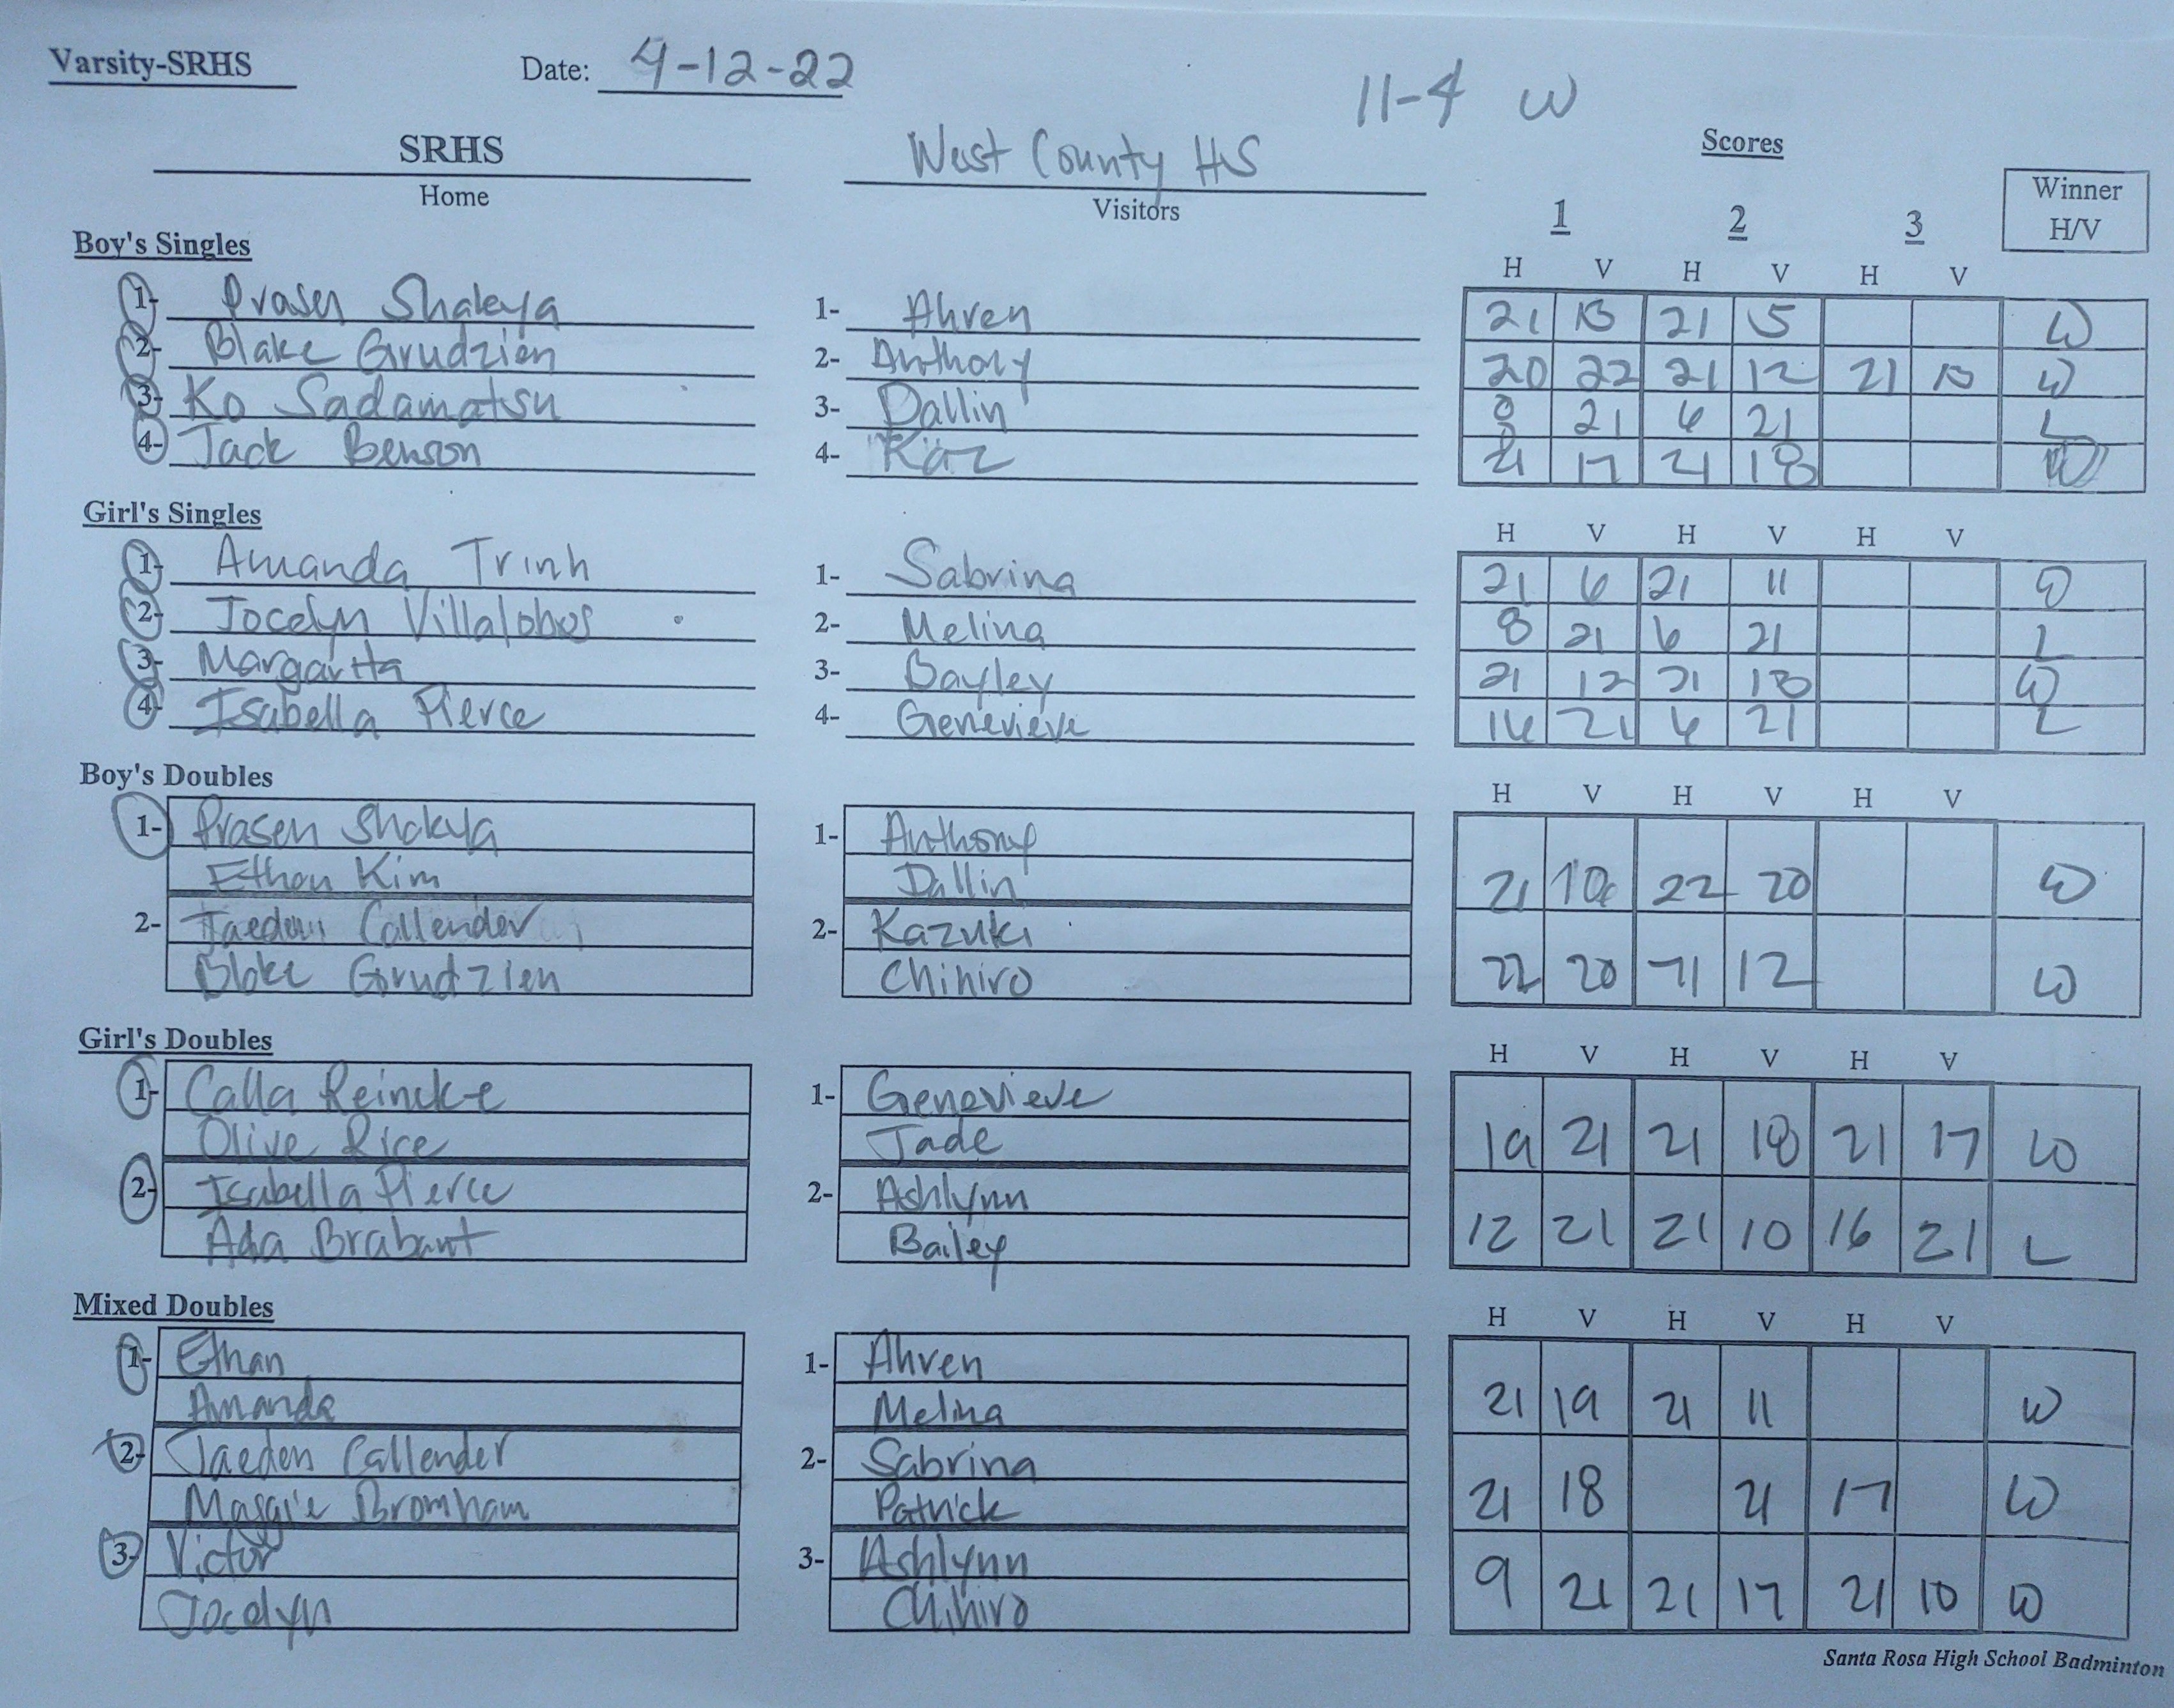 Varsity-SRHS Date: 4-12-22
11-4 W
SRHS West County HS Scores
Home Visitors 1 2 3 Winner H/V
Boy's Singles H V H V H V
1- Prasen Shakya 1- Ahren 21 13 21 5 W
2- Blake Grudzien 2- Anthony 20 22 21 12 21 W
3- Ko Sadamatsu 3- Dallin 8 21 6 21 L
4- Jack Benson 4- Kaz 21 17 21 18 W
Girl's Singles H V H V H V
1- Amanda Trinh 1- Sabrina 21 6 21 11 W
2- Jocelyn Villalobos 2- Melina 8 21 6 21 L
3- Margarita 3- Bayley 21 12 21 18 W
4- Isabella Pierce 4- Genevieve 16 21 6 21 L
Boy's Doubles H V H V H V
1- Prasen Shakya 1- Anthony
Ethan Kim Dallin 21 22 20 W
2- Jaeden Callender 2- Kazuki
Blake Grudzien Chihiro 22 20 21 12 W
Girl's Doubles H V H V H V
1- Calla Reincke 1- Genevieve
Olive Rice Jade 19 21 21 18 21 17 W
2- Isabella Pierce 2- Ashlynn
Ada Brabant Bailey 12 21 21 10 16 21 L
Mixed Doubles H V H V H V
1- Ethan 1- Ahren
Amanda Melina 21 19 21 11 W
2- Jaeden Callender 2- Sabrina
Maggie Bromham Patrick 21 18 21 17 W
3- Victor 3- Ashlynn
Jocelyn Chihiro 9 21 21 17 21 10 W
Santa Rosa High School Badminton